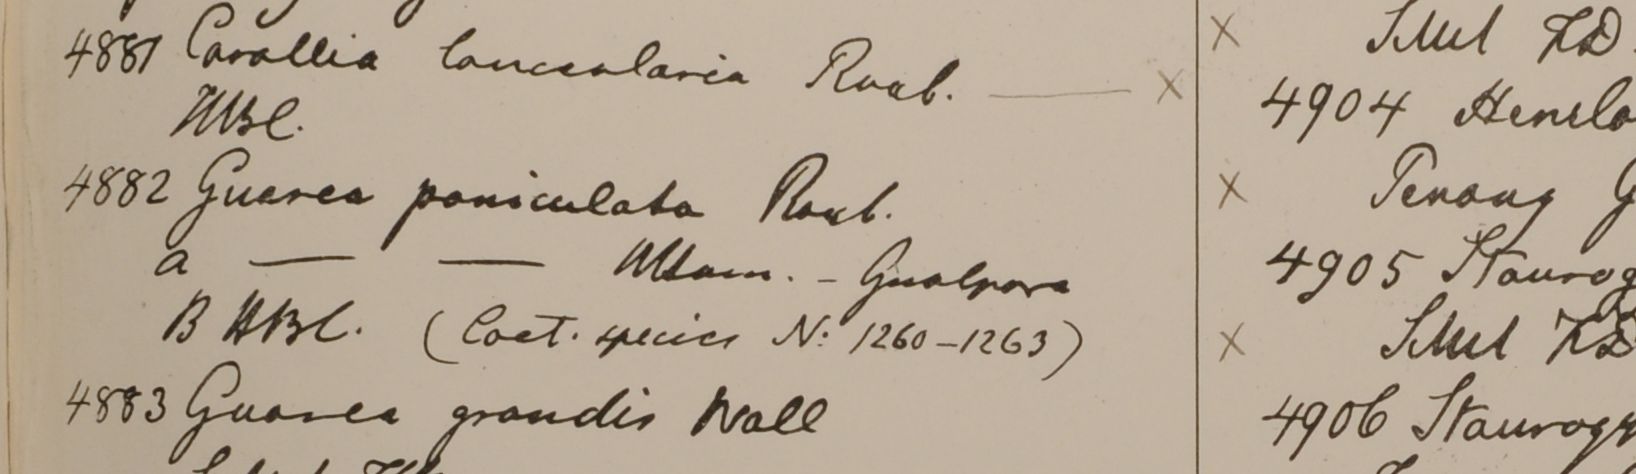 4881 Carallia lanceolaria Roxb. ——— ×
HBC.
4882 Guarea paniculata Roxb.
a — — Ham. – Gualpara
B HBC. (Caet. species No: 1260–1263)
4883 Guarea grandis Wall
×
4904 Henslo
× Penang G
4905 Staurog
×
4906 Staurogy